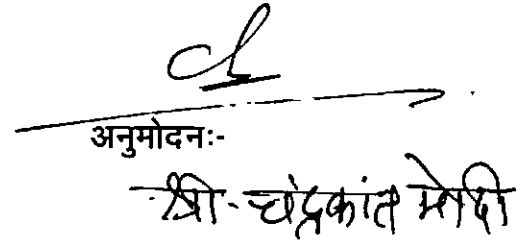 अनुमोदनः-
श्री - चंद्रकांत मोदी